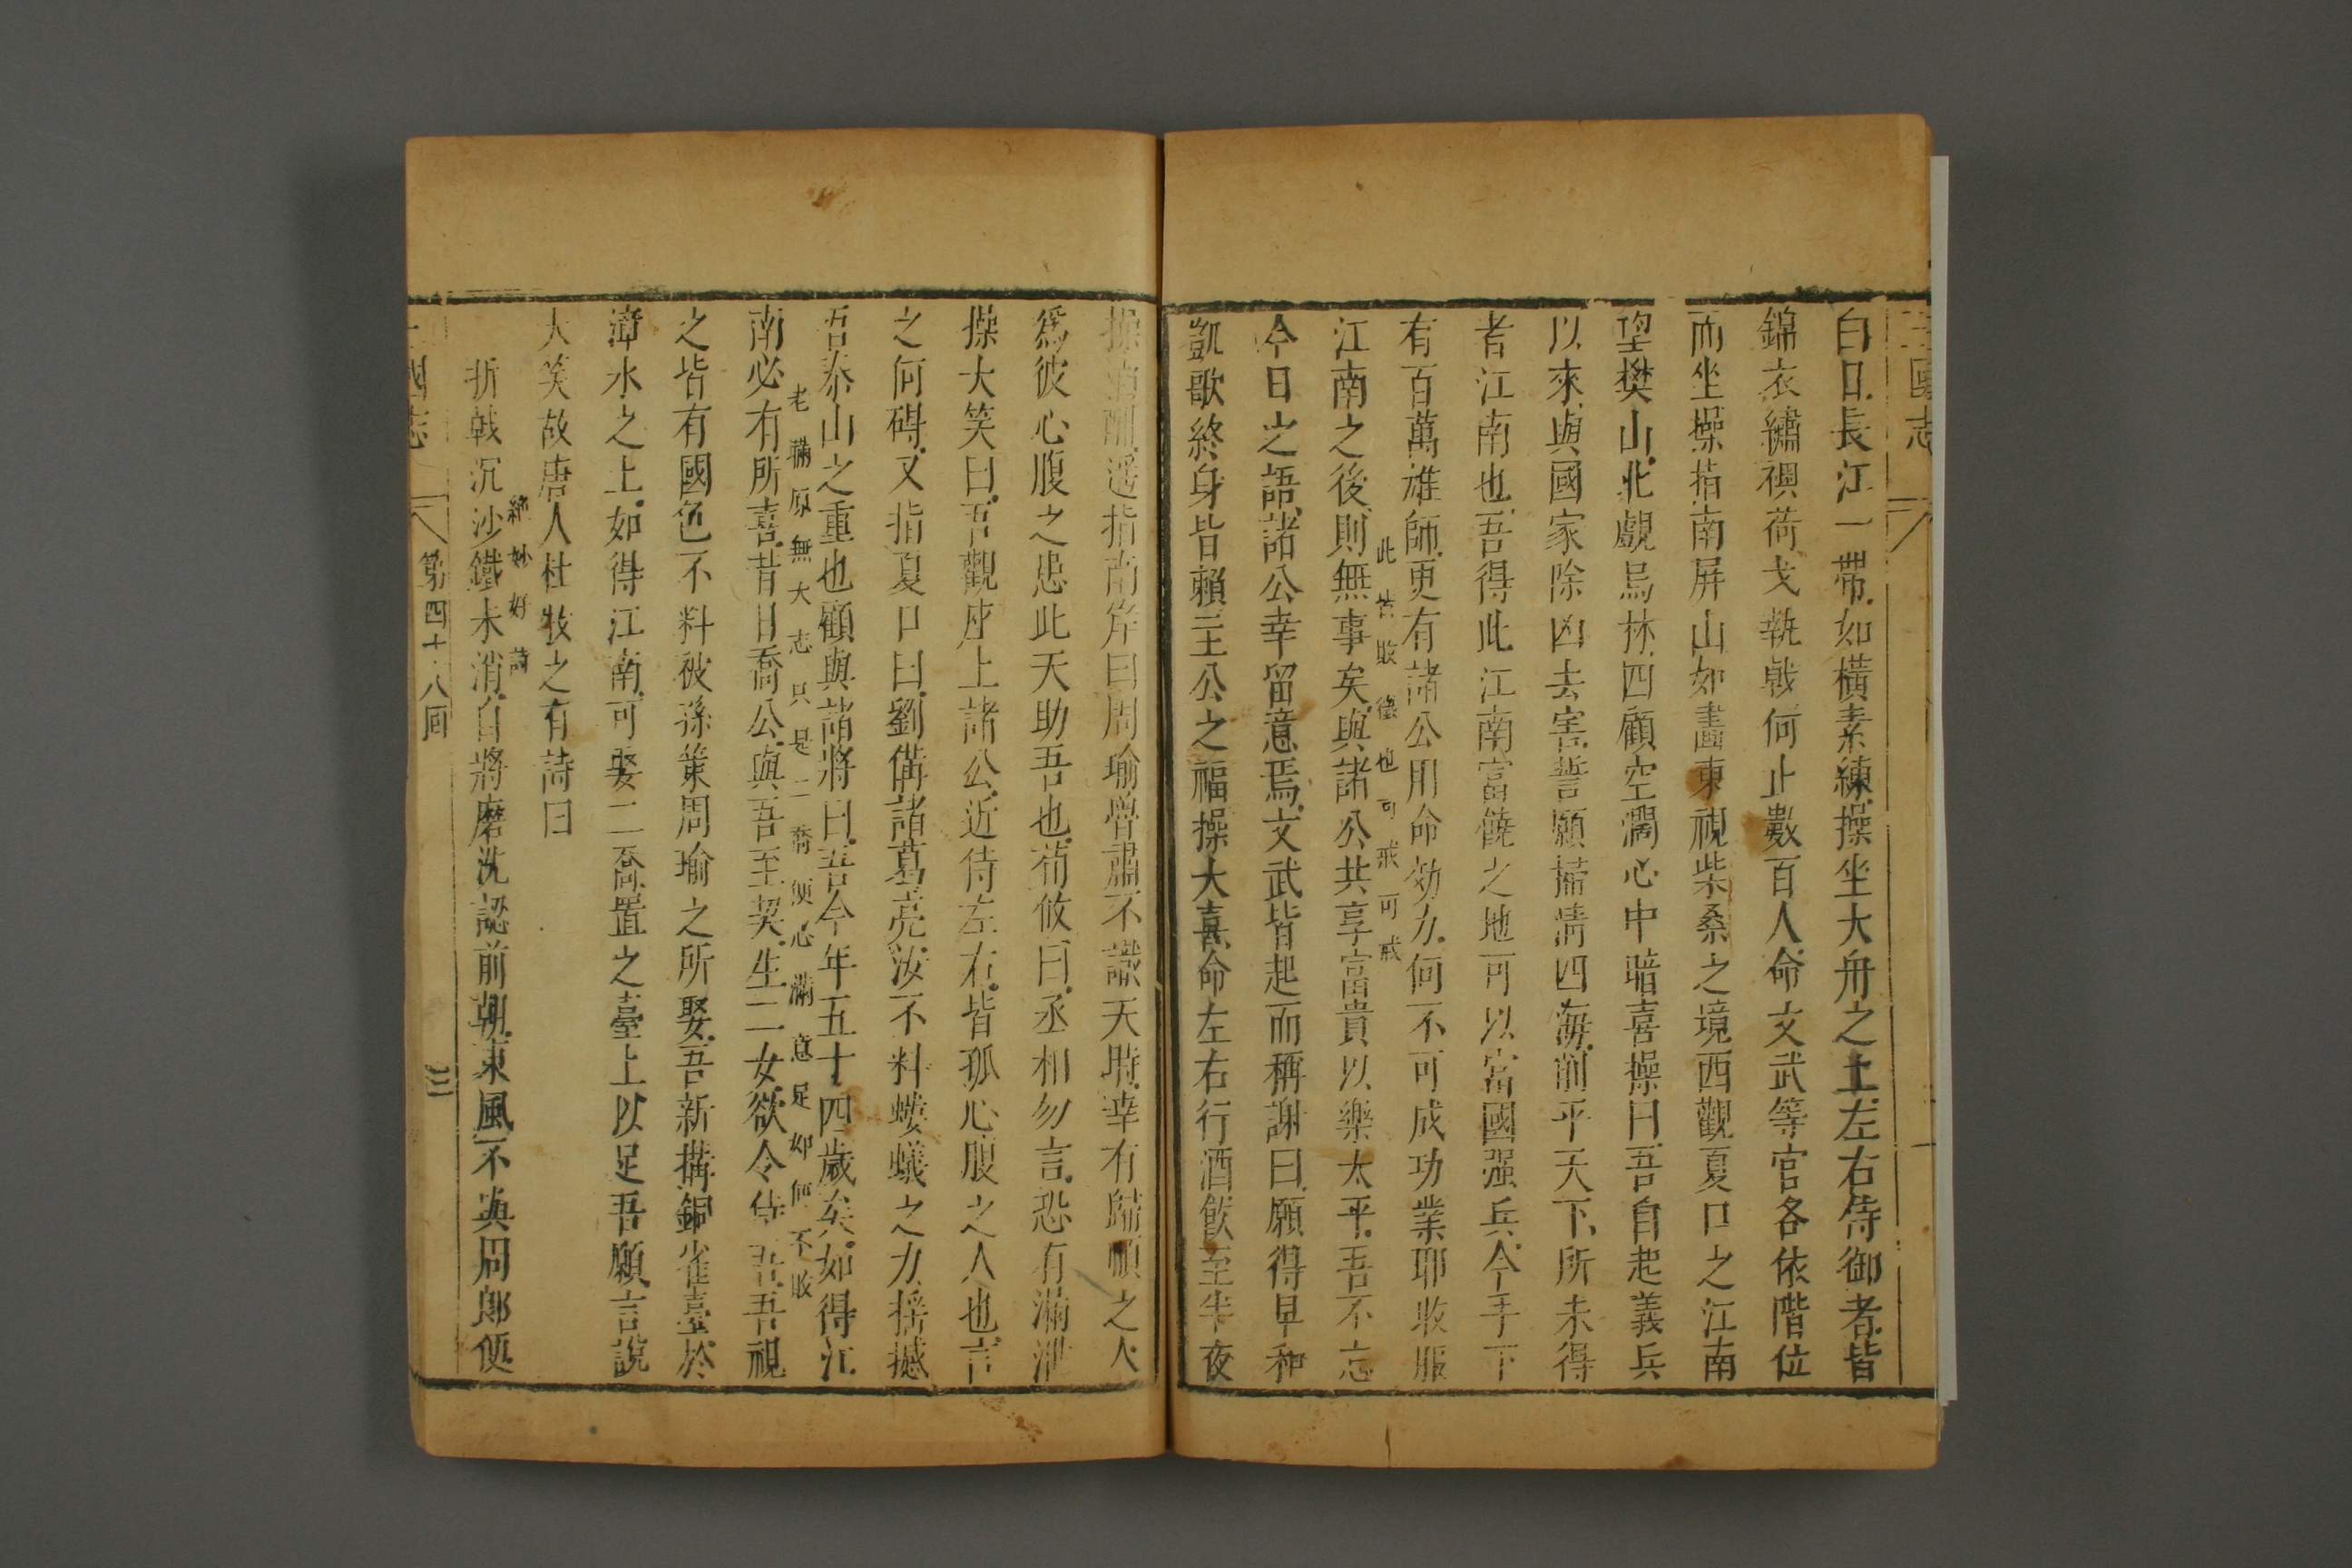 三國志
白日長江一帶如橫素練操坐大舟之上左右侍御者皆
錦衣繡襖荷戈執戟何止數百人命文武等官各依階位
而坐操指南屏山如畫東視柴桑之境西觀夏口之江南
望樊山北覷烏林四顧空濶心中暗喜操曰吾自起義兵
以來與國家除凶去害誓願掃清四海削平天下所未得
者江南也吾得此江南富饒之地可以富國强兵今手下
有百萬雄師更有諸公用命効力何不可成功業耶收服
此皆敗徵也可戒可戒
江南之後則無事矣與諸公共享富貴以樂太平吾不忘
今日之語諸公幸留意焉文武皆起而稱謝曰願得早和
凱歌終身皆賴主公之福操大喜命左右行酒飲至半夜
操酒酣遥指南岸曰周瑜魯肅不識天時幸有歸順之人
爲彼心腹之患此天助吾也荀攸曰丞相勿言恐有漏泄
操大笑曰吾觀座上諸公近侍左右皆孤心腹之人也言
之何碍又指夏口曰劉備諸葛亮汝不料螻蟻之力搖撼
吾泰山之重也顧與諸將曰吾今年五十四歲矣如得江
老瞞原無大志只是二喬便心滿意足如何不敗
南必有所喜昔日喬公與吾至契生二女欲令侍吾吾視
之皆有國色不料被孫策周瑜之所娶吾新搆銅雀臺於
漳水之上如得江南可娶二喬置之臺上以足吾願言說
大笑故唐人杜牧之有詩曰
絕妙好詩
折戟沉沙鐵未消自將磨洗認前朝東風不與周郎便
三國志
第四十八回
三